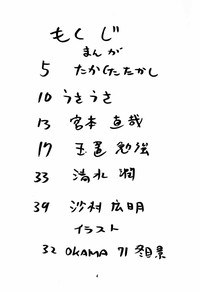 もくじ
まんが
5 たかしたたかし
10 うさうさ
13 宮本直哉
17 玉置勉強
33 清水潤
39 沙村広明
イラスト
32 OKAMA 71 冬目景